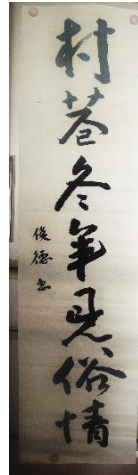 村巷冬年见俗情
俊德书